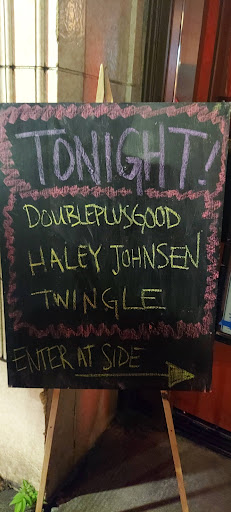 TONIGHT!
DOUBLEPLUSGOOD
HALEY JOHNSEN
TWINGLE
ENTER AT SIDE